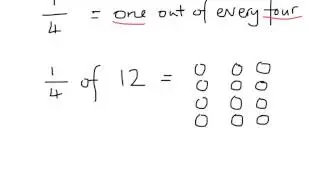 1/4 = one out of every four
1/4 of 12 =